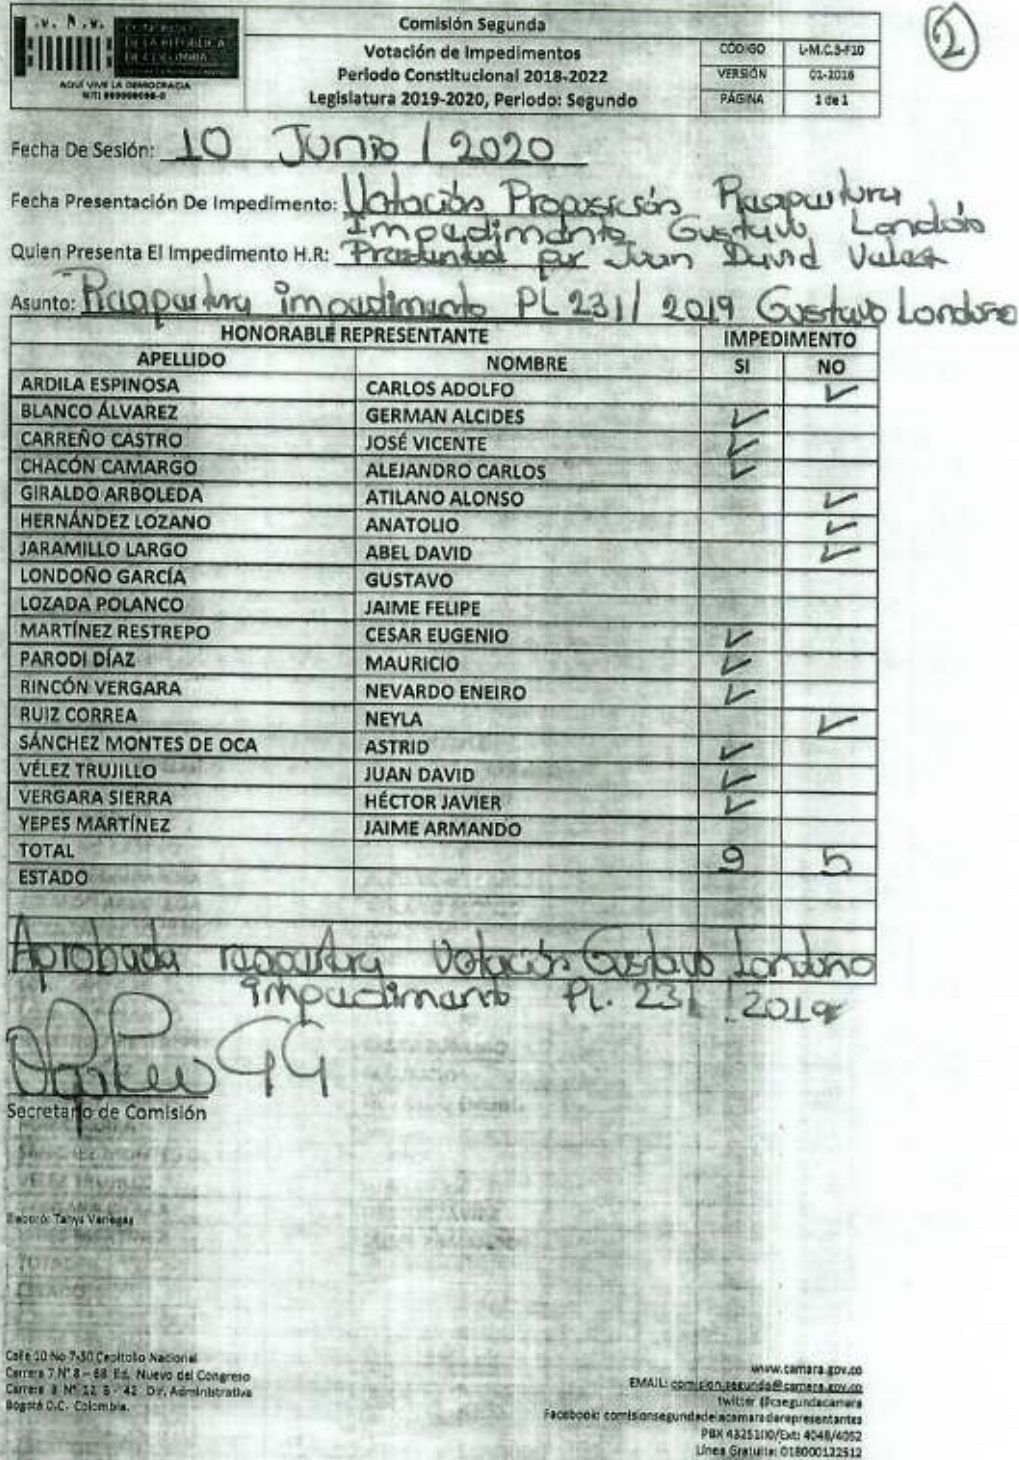 Comisión Segunda
Votación de Impedimentos
Periodo Constitucional 2018-2022
Legislatura 2019-2020, Periodo: Segundo
CÓDIGO L-M.C.3-F10
VERSIÓN 01-2016
PÁGINA 1 de 1
2
DE LA REPÚBLICA
DE COLOMBIA
AQUÍ VIVE LA DEMOCRACIA
Fecha De Sesión: 10 Junio / 2020
Fecha Presentación De Impedimento: Votación Proposición Reapertura
Impedimento Gustavo Londoño
Quien Presenta El Impedimento H.R: Presentada por Juan David Velez
Asunto: Reapertura impedimento PL 231 / 2019 Gustavo Londono
HONORABLE REPRESENTANTE IMPEDIMENTO
APELLIDO NOMBRE SI NO
ARDILA ESPINOSA CARLOS ADOLFO ✓
BLANCO ÁLVAREZ GERMAN ALCIDES ✓
CARREÑO CASTRO JOSÉ VICENTE ✓
CHACÓN CAMARGO ALEJANDRO CARLOS ✓
GIRALDO ARBOLEDA ATILANO ALONSO ✓
HERNÁNDEZ LOZANO ANATOLIO ✓
JARAMILLO LARGO ABEL DAVID ✓
LONDOÑO GARCÍA GUSTAVO
LOZADA POLANCO JAIME FELIPE
MARTÍNEZ RESTREPO CESAR EUGENIO ✓
PARODI DÍAZ MAURICIO ✓
RINCÓN VERGARA NEVARDO ENEIRO ✓
RUIZ CORREA NEYLA ✓
SÁNCHEZ MONTES DE OCA ASTRID ✓
VÉLEZ TRUJILLO JUAN DAVID ✓
VERGARA SIERRA HÉCTOR JAVIER ✓
YEPES MARTÍNEZ JAIME ARMANDO
TOTAL 9 5
ESTADO
Aprobada reapertura Votación Gustavo Londono
impedimento PL. 231 / 2019
Secretario de Comisión
Elaboró: Tanya Vanegas
Calle 10 No 7-50 Capitolio Nacional
Carrera 7 N° 8 – 68 Ed. Nuevo del Congreso
Carrera 8 N° 12 B - 42 Dir. Administrativa
Bogotá D.C. Colombia.
www.camara.gov.co
EMAIL: comision.segunda@camara.gov.co
twitter @csegundacamara
Facebook: comisionsegundadelacamaraderepresentantes
PBX 4325100/Ext: 4048/4052
Línea Gratuita: 018000122512